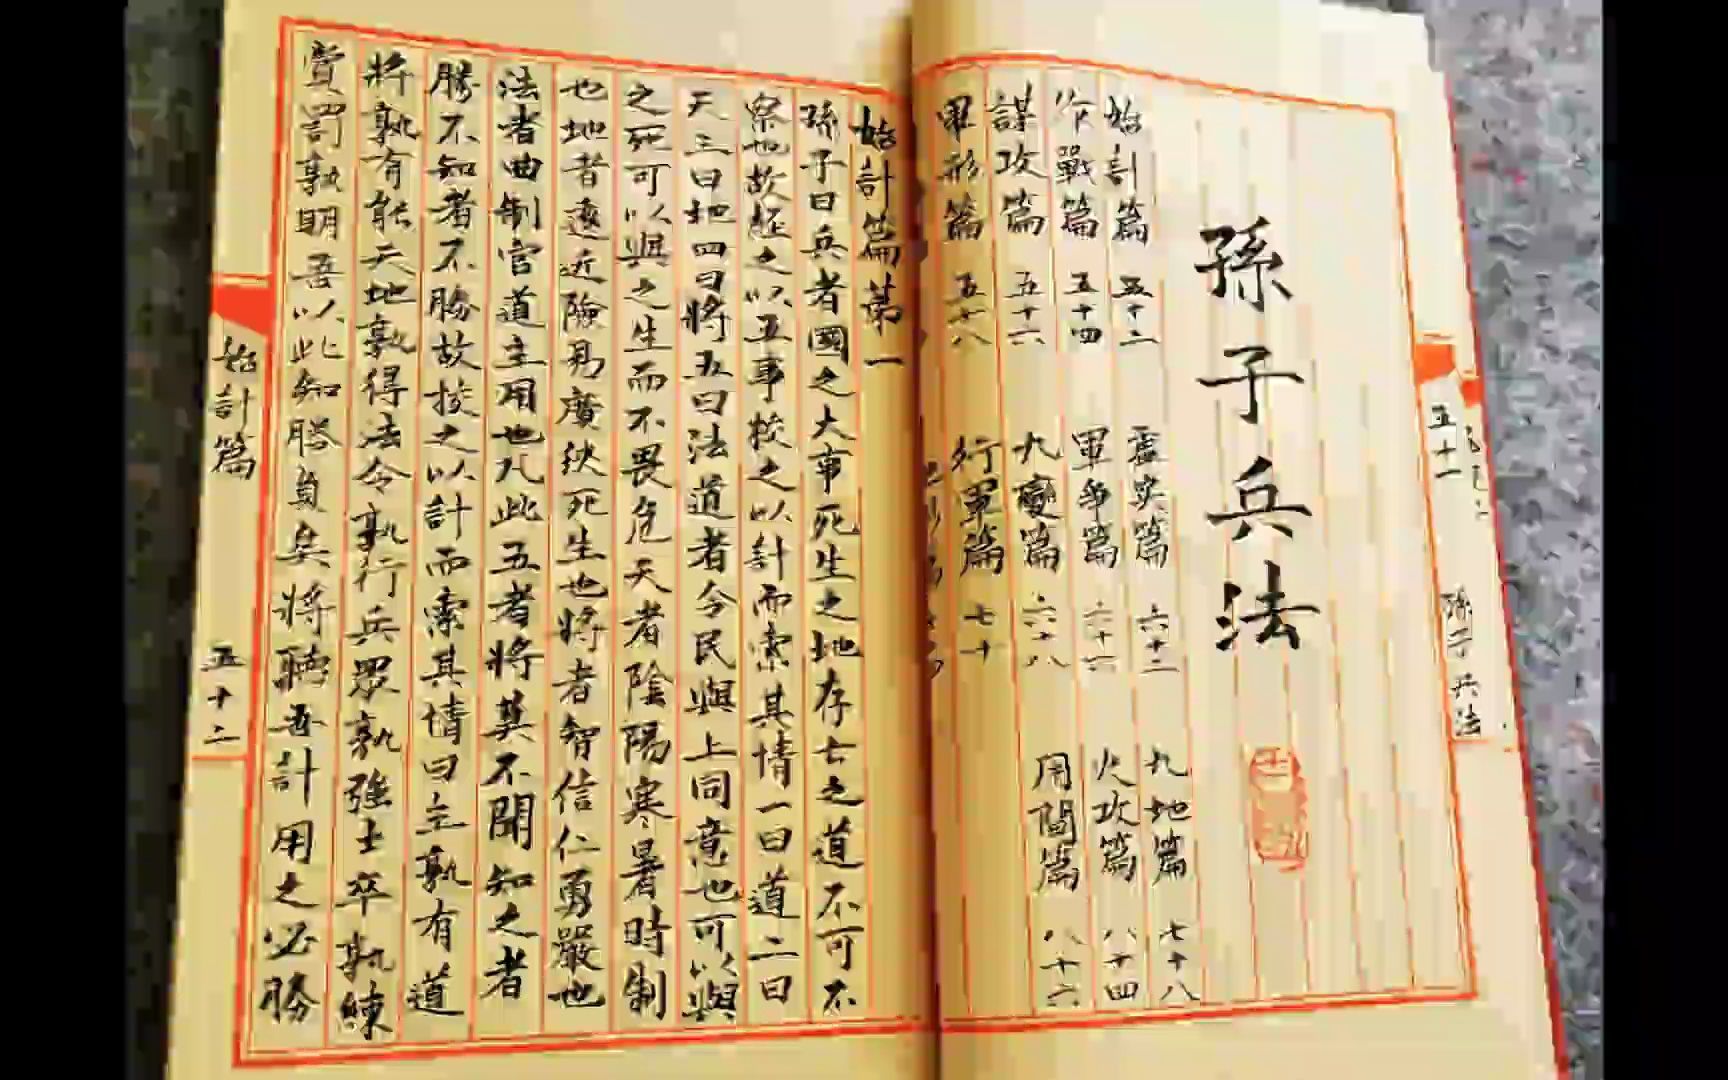 五十一 孫子兵法
孫子兵法
始計篇 五十二 虛实篇 六十二 九地篇 七十八
作戰篇 五十四 軍爭篇 火攻篇 八十四
謀攻篇 五十六 九變篇 六十八 用間篇 八十六
軍形篇 五十八 行軍篇 七十
始計篇第一
孫子曰兵者國之大事死生之地存亡之道不可不
察也故經之以五事校之以計而索其情一曰道二曰
天三曰地四曰將五曰法道者令民與上同意也可以與
之死可以與之生而不畏危天者陰陽寒暑時制
也地者遠近險易廣狹死生也將者智信仁勇嚴也
法者曲制官道主用也凡此五者將莫不聞知之者
勝不知者不勝故校之以計而索其情曰主孰有道
將孰有能天地孰得法令孰行兵眾孰強士卒孰練
賞罰孰明吾以此知勝負矣將聽吾計用之必勝
始計篇 五十二